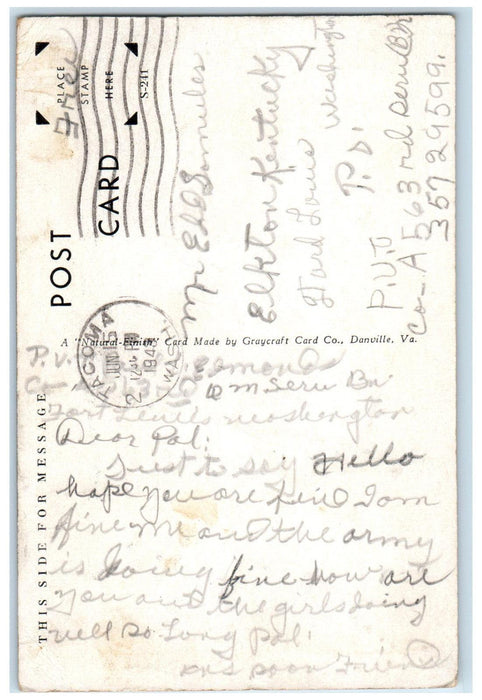 PLACE
STAMP
HERE
S-241
Free
POST CARD
TACOMA
JUN 15
12 PM
194
WASH
Mr Edd Samules
Elkton Kentucky
Ford Louis Washington
P.O.
P.V.T
Co-A 563rd Serv Bn
35729599.
A "Natural-Finish" Card Made by Graycraft Card Co., Danville, Va.
THIS SIDE FOR MESSAGE
P.v. Edmond
Co A 63 M. Serv Bn
Fort Lewis washington
Dear Pal:
Just to say Hello
hope you are fine I am
fine me and the army
is doing fine how are
you and the girls doing
well so Long pal.
ans soon Friend